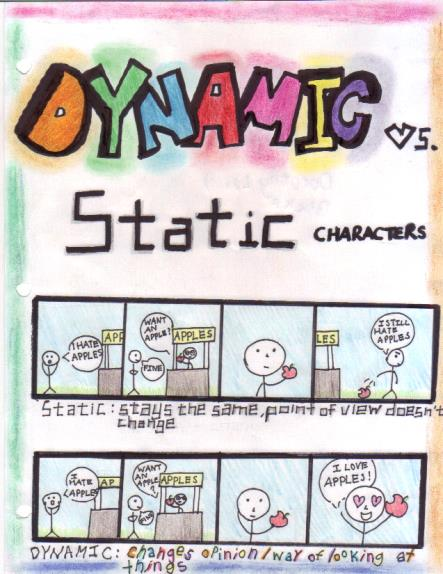 DYNAMIC ♡s.
Static CHARACTERS
I HATE APPLES
AP
WANT AN APPLE?
APPLES
FINE
LES
I STILL HATE APPLES
Static: stays the same, point of view doesn't
change
I HATE APPLES
AP
WANT AN APPLE?
APPLES
FINE
I LOVE APPLES!
DYNAMIC: changes opinion/way of looking at
things